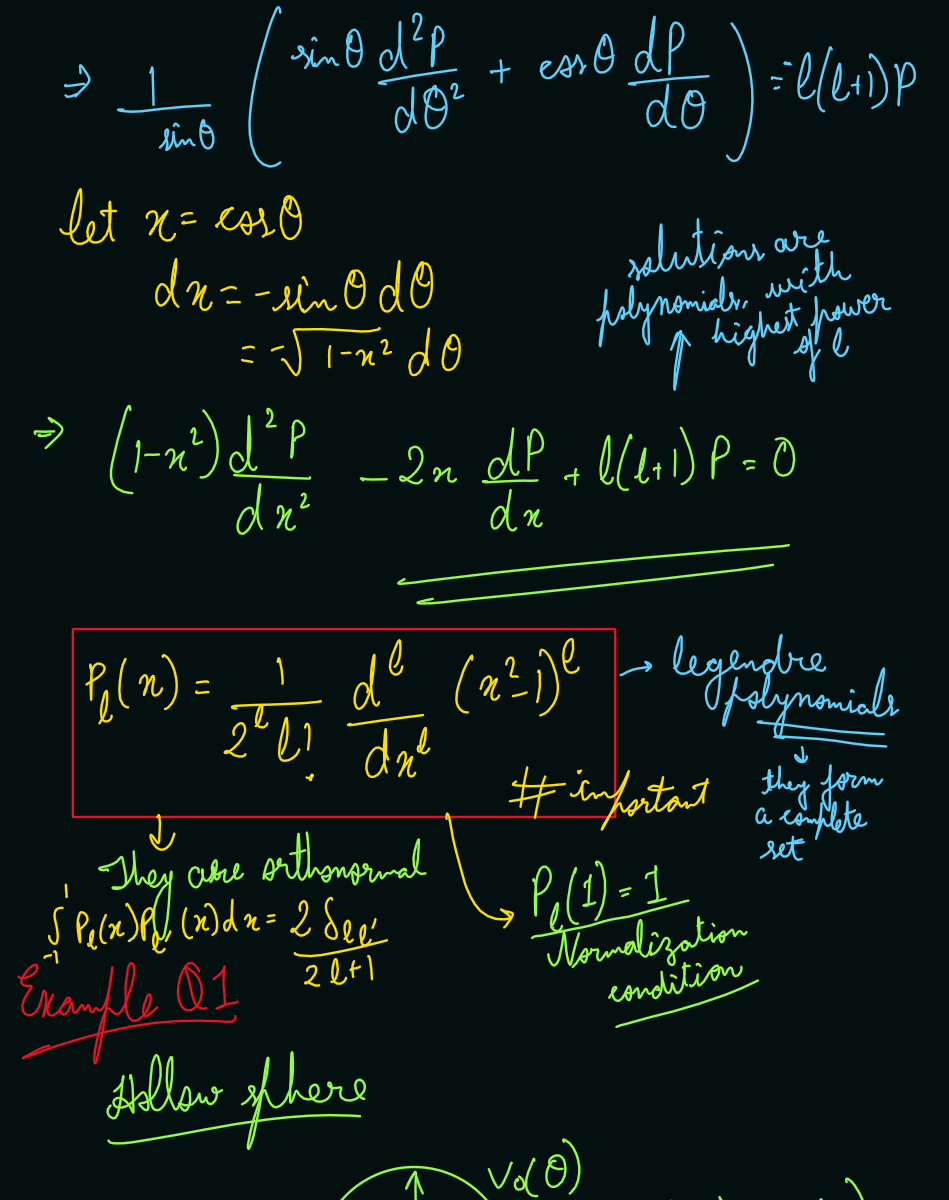 ⇒ 1/sinθ ( sinθ d²P/dθ² + cosθ dP/dθ ) = -l(l+1)P
let x = cosθ
dx = -sinθ dθ
= -√(1-x²) dθ
solutions are
polynomials, with
highest power
of l
⇒ (1-x²) d²P/dx² - 2x dP/dx + l(l+1) P = 0
P_l(x) = 1/(2^l l!) d^l/dx^l (x²-1)^l
→ legendre
polynomials
↓
they form
a complete
set
# important
They are orthonormal
∫_{-1}^{1} P_l(x) P_l'(x) dx = 2 δ_ll' / (2l+1)
P_l(1) = 1
Normalization
condition
Example Q1
Hollow sphere
V₀(θ)